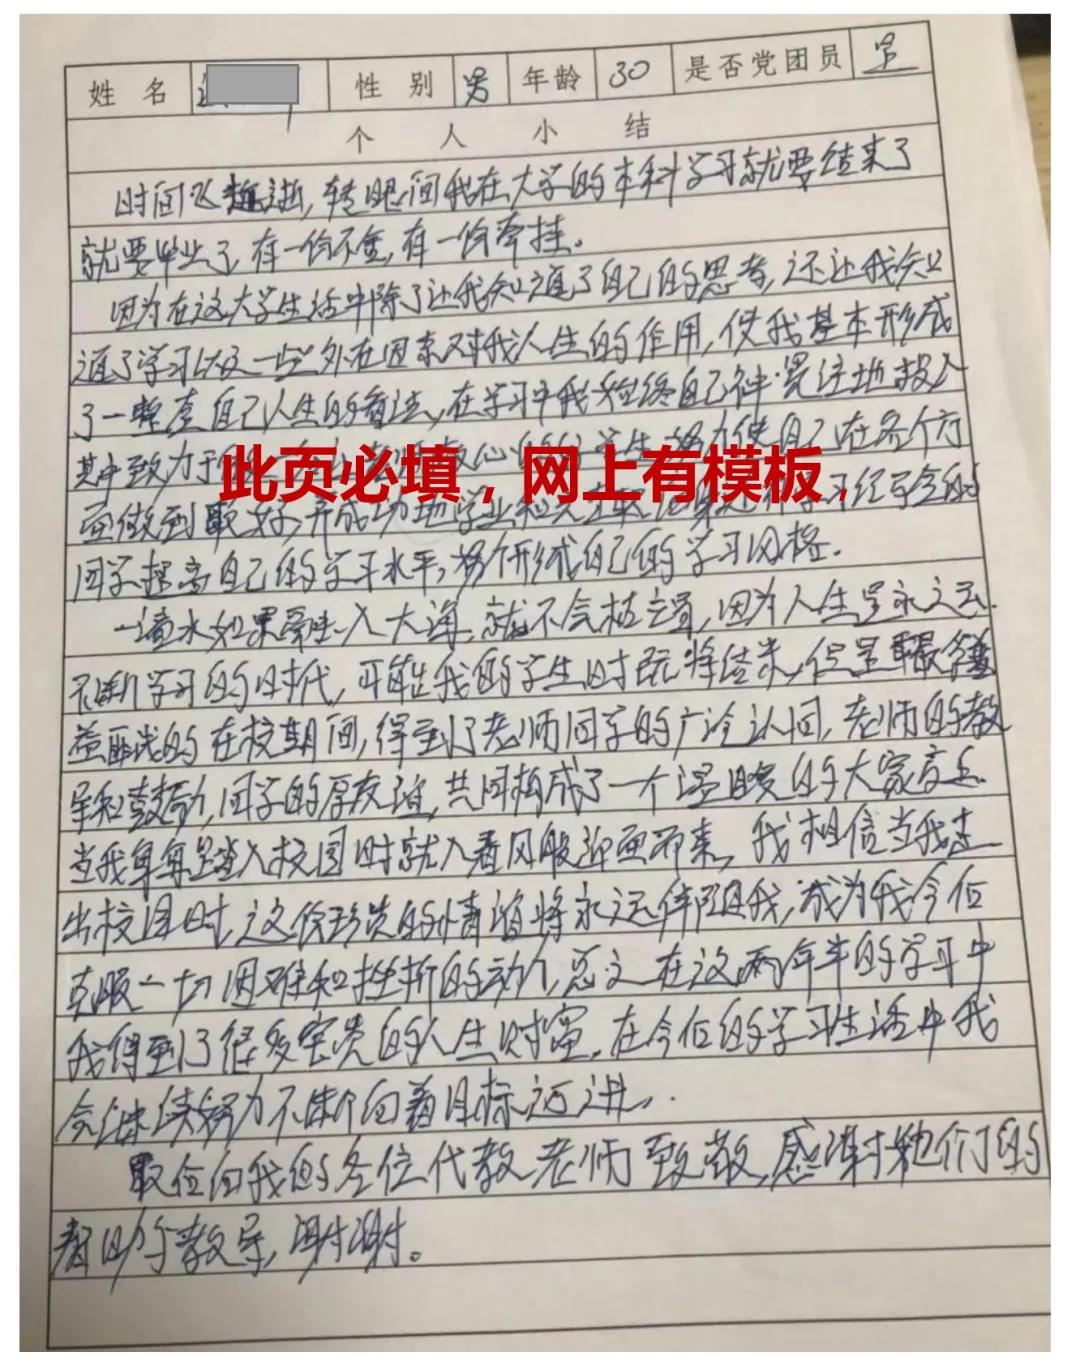 姓名 性别 男 年龄 30 是否党团员 是
个人小结
时间飞逝,转眼间我在大学的本科学习就要结束了
就要毕业了,有一份不舍,有一份牵挂。
因为在这大学生活中除了让我知道了自己的思考,还让我知
道了学习以及一些外在因素对我人生的作用,使我基本形成
了一整套自己人生的看法,在学习中我始终自己神贯注地投入
其中致力于 学生,努力使自己在各个方
此页必填,网上有模板,
面做到最好,并成功地 学习经
同学提高自己的学习水平,努力形成自己的学习风格.
一滴水如果融入大海,就不会枯竭,因为人生是永远
不断学习的时代,可能我的学生时代将结束,但是最令
我的在校期间,得到了老师同学的广泛认同,老师的教
导和鼓励,同学的厚友谊,共同构成了一个温暖的大家庭.
当我每每踏入校园时就入春风般迎面而来,我相信当我走
出校园时,这份珍贵的情谊将永远伴随我,成为我今后
克服一切困难和挫折的动力,总之在这两年半的学习中
我得到了很多宝贵的人生财富,在今后的学习生活中我
会继续努力不断向着目标迈进..
最后向我的各位代教老师致敬,感谢他们的
帮助与教导,谢谢。